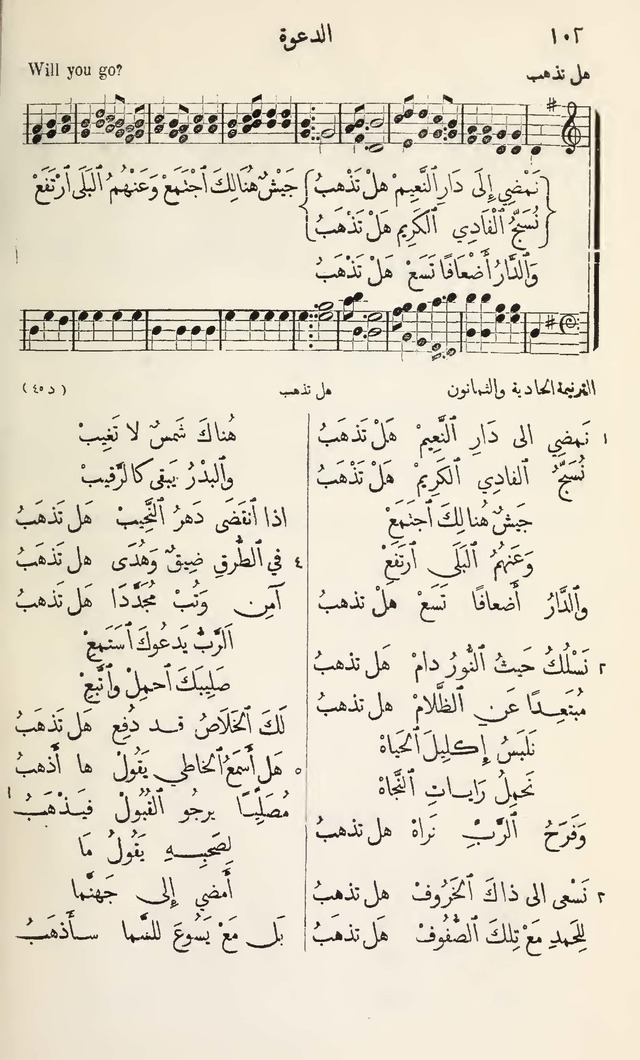 ١٠٢
الدعوة
هل تذهب
Will you go?
نَمْضِي إِلَى دَارِ ٱلنَّعِيمْ هَلْ تَذْهَبُ جَيْشٌ هُنَالِكَ ٱجْتَمَعْ وَعَنْهُمُ ٱلْبَلَى ٱرْتَفَعْ
نُسَبِّحُ ٱلْفَادِي ٱلْكَرِيمْ هَلْ تَذْهَبُ
وَٱلدَّارُ أَضْعَافًا تَسَعْ هَلْ تَذْهَبُ
الترنيمة الحادية والثمانون
هل تذهب
(د ٤٥)
١ نَمضِي الى دَارِ ٱلنَّعِيمْ هَلْ تَذهَبُ
نُسَبِّحُ ٱلفادِي ٱلكَرِيمْ هَلْ تَذْهَبُ
جَيشٌ هُنالِكَ ٱجتَمَعْ
وَعَنهُمُ ٱلبَلَى ٱرتَفَعْ
وَٱلدَّارُ أَضعافًا تَسَعْ هَل تَذهَبُ
٢ نَسْلُكُ حَيثُ ٱلنُّورُ دامْ هَل تَذهبُ
مُبتَعِدًا عَنِ ٱلظَّلامْ هَل تَذهبُ
نَلبَسُ إِكلِيلَ ٱلحَياهْ
نَحمِلُ رَاياتِ ٱلنَّجاهْ
وَفَرَحُ ٱلرَّبِّ نَراهْ هل تذهبُ
٣ نَسْعى الى ذاكَ ٱلخَرُوفْ هل تَذهبُ
لِلحَمدِ مَعْ تِلكَ ٱلصُّفُوفْ هَل تَذهَبُ
هُناكَ شَمسٌ لا تَغِيبْ
وٱلبدْرُ يَبقى كالرَّقيبْ
اذا ٱنقَضَى دَهرُ ٱلنَّحِيبْ هَل تَذهَبُ
٤ في ٱلطُّرقِ ضِيقٌ وَهُدَى هَل تَذهَبُ
آمِن وَتُبْ مُجَدَّدًا هَل تَذهَبُ
اَلرَّبُّ يَدعُوكَ ٱستَمِعْ
صَلِيبَكَ ٱحمِلْ وٱتَّبِعْ
لَكَ ٱلخَلَاصُ قد دُفِع هَل تَذهَبُ
٥ هَل أَسمَعُ ٱلخاطي يَقُولْ ها أَذهَبُ
مُصَلِّيًا يرجُو ٱلقَبُولْ فيَذهَبُ
لِصَحبِهِ يَقُولُ مَا
أَمضي إِلى جَهنَّما
بَل مَعْ يَسُوعَ للسَّما سأَذهَبُ